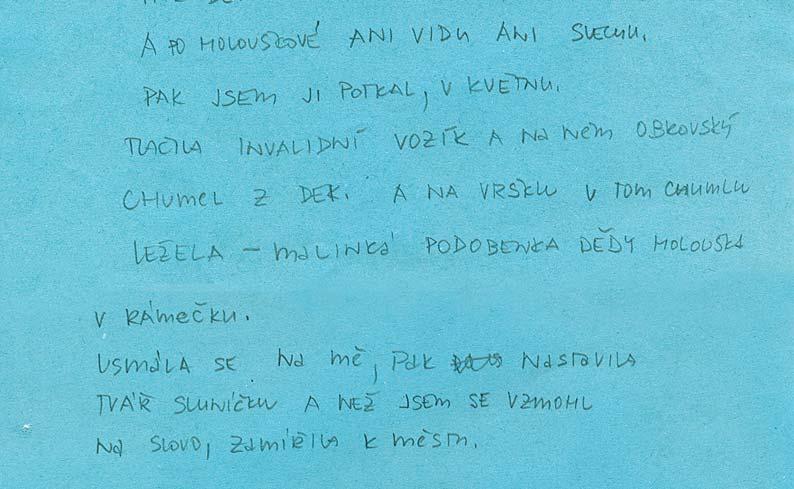 A PO HOLOUŠKOVÉ ANI VIDU ANI SLECHU.
PAK JSEM JI POTKAL, V KVĚTNU.
TLAČILA INVALIDNÍ VOZÍK A NA NĚM OBROVSKÝ
CHUMEL Z DEK. A NA VRŠKU V TOM CHUMLU
LEŽELA – MALINKÁ PODOBENKA DĚDY HOLOUŠKA
V RÁMEČKU.
USMÁLA SE NA MĚ, PAK NASTAVILA
TVÁŘ SLUNÍČKU A NEŽ JSEM SE VZMOHL
NA SLOVO, ZAMÍŘILA K MĚSTU.